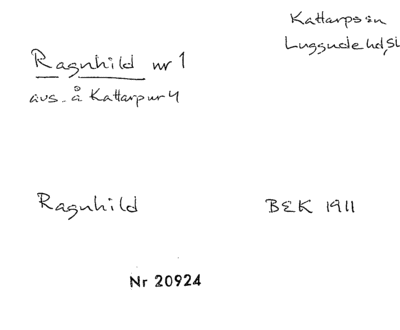 Kattarps sn
Luggude hd, Sk
Ragnhild nr 1
avs. å Kattarp nr 4
Ragnhild
BEK 1911
Nr 20924